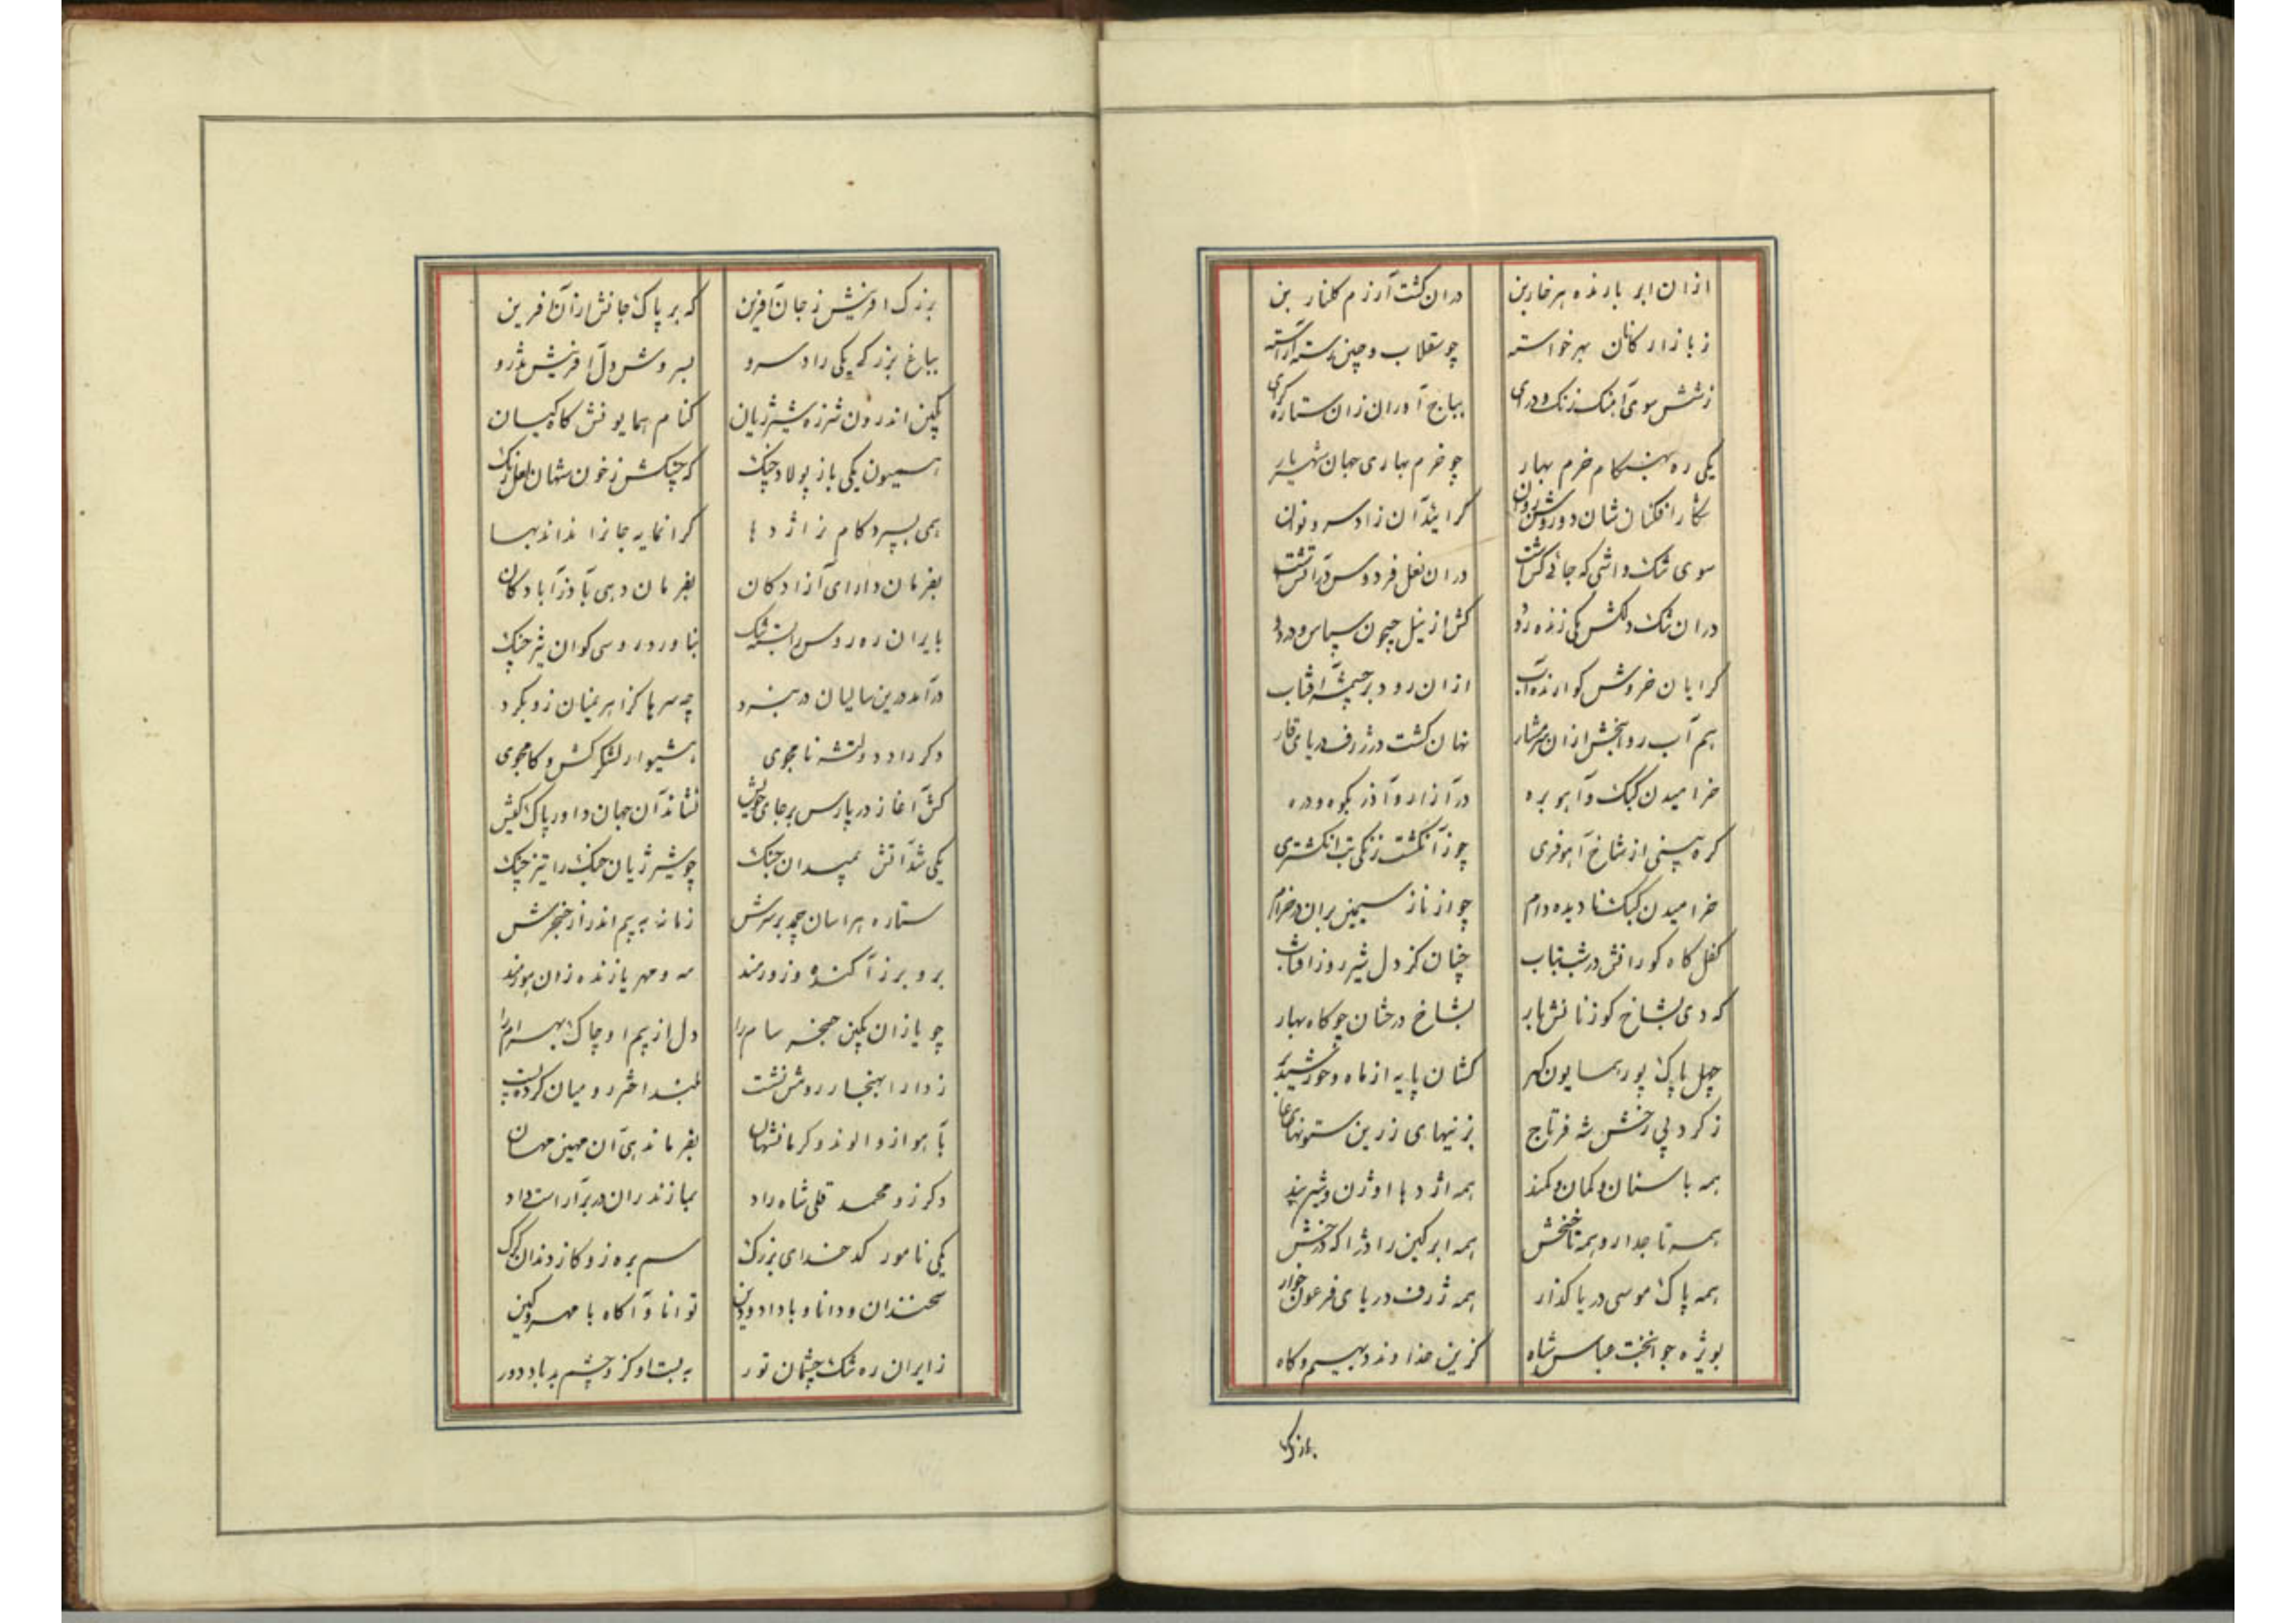 ازان ابر بارنده هر خاربن دران کشت آرزم کلنار بن
ز بازارکانان بهر خواسته چو سقلاب و چین رسته آراسته
ز شش سوی آهنک زنک و درای بباج آوران زان ستاره کرای
یکی ره بهنکام خرم بهار چو خرم بهاری جهان شهریار
شکار افکنان شان دو روشن روان کرایند آن زاد سرو نوان
سوی تنک واشی که جائی کزاشت دران نغل فردوس
دران تنک دلکش یکی زنده رود کش از نیل جیحون سپاس و درود
کرایان خروش کوارنده آب ازان رود بر چشمه آفتاب
هم آب روانبخش ازان سرشار نهان کشت در ژرف دریای قار
خرامیدن کبک و آهو بره در آزار و آذر بکوه و دره
کره بینی از شاخ آهو فری چو ز آنکشت زنکی تب انکشتری
خرامیدن کبک نادیده دام چو از ناز سیمین بران در خرام
کفل کاه کورانش در شب بتاب چنان کز دل شیر روز آفتاب
که دی بشاخ کوزنانش بار بشاخ درختان چو کاه بهار
چهل پاک پور همایون کهر کشان پایه از ماه و خورشید بر
ز کرد پی رخش شه فر تاج بزینهای زرین ستونهای عاج
همه با سنان و کمان و کمند همه اژدها اوژن و شیر بند
همه تاجدار و همه تاجبخش همه ابر کین را درخش
همه پاک موسی دریا کذار همه ژرف دریای فرعون خوار
بویژه جوانبخت عباس شاه کزین خداوند دیهیم و کاه
بزرک
بزرک افرینش ز جان آفرین که بر پاک جانش ازان آفرین
بباغ بزرکی یکی راد سرو بسر وش ول آفرینش تذرو
بکین اندرون شرزه شیر ژیان کنام همایونش کاه کیان
یکی باز پولاد چنک که چنکش ز خون شهان لعل رنک
همی بسپرد کام نر اژدها کرانمایه جانرا نداند بها
بفرمان دارای آزادکان بفرمان دهی بآذرآبادکان
بایران ره روس را بسته تنک بناورد روسی کوان تیز چنک
درآمد درین سالیان در نبرد چه سرها کز اهریمنان زو بکرد
دکر راد دولتشه نامجوی هشیوار لشکرکش و کامجوی
کش آغاز در پارس بر جای خویش نشاند آن جهان داور پاک کیش
یکی تند آتش بمیدان جنک چو شیر ژیان جنک را تیز چنک
ستاره هراسان چمد بر سرش زمانه به بیم اندر از خنجرش
برو برز آکنده و زورمند مه و مهر یازنده زان هورمند
چو یازان بکین خنجر سام را دل از بیم او چاک بهرام را
ز دارا بهنجار روشن نشست بلند اختر رومیان کرده پست
بآهواز و الوند و کرمانشهان بفرماندهی آن مهین مهان
دکر زو محمد قلی شاه راد بمازندران در برآراست داد
یکی نامور کدخدای بزرک سم بره زو کاز دندان کرک
سخندان و دانا و با داد و دین توانا و آکاه با مهر و کین
ز ایران ره تنک چشمان تور به بست او کزو چشم بد باد دور